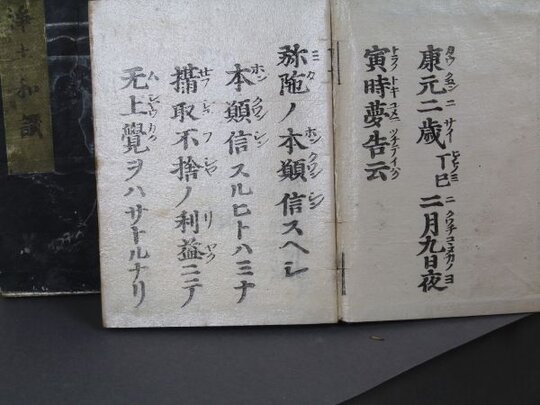 康元二歳丁巳二月九日夜
寅時夢告云
弥陁ノ本願信スヘシ
本願信スルヒトハミナ
攝取不捨ノ利益ニテ
无上覺ヲハサトルナリ
浄土和讃